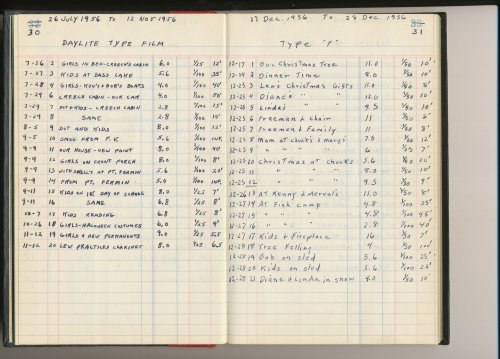 26 July 1956 TO 12 Nov 1956
30
DAYLITE TYPE FILM
7-26 2 GIRLS IN BEV-CREECH'S CABIN 6.0 1/25 12'
7-27 3 KIDS AT BASS LAKE 5.6 1/100 35'
7-28 4 GIRLS-KEN'S & BOB'S BOATS 4.0 1/100 40'
7-29 6 CREECH CABIN - OUR CAR 4.0 1/100 50'
7-29 7 DOT & KIDS - CREECH CABIN 2.8 1/100 15'
7-29 8 SAME 2.8 1/100 10'
8-5 9 DOT AND KIDS 8.0 1/100 12'
9-9 10 SMOG FROM P.V. 5.6 1/100 INF.
9-9 11 OUR HOUSE - NEW PAINT 8.0 1/100 40'
9-9 12 GIRLS ON FRONT PORCH 8.0 1/100 8'
9-9 13 WITH SHELLY AT PT. FERMIN 5.6 1/100 20'
9-9 14 FROM PT. FERMIN 5.6 1/100 INF.
9-11 15 KIDS ON 1ST DAY OF SCHOOL 8.0 1/25 7'
9-11 16 SAME 6.8 1/25 8'
10-7 17 KIDS READING 6.8 1/25 8'
10-26 18 GIRLS-HALLOWEEN COSTUMES 6.0 1/25 9'
11-12 19 GIRLS & NEW PERMANENTS 9.0 1/25 5.5
11-12 20 LEW PRACTICES CLARINET 8.0 1/25 6.5
17 Dec, 1956 TO 28 Dec. 1956
31
TYPE "F"
12-17 1 Our Christmas Tree 11.0 1/50 10'
12-24 2 Dinner Time 8.0 1/50 10'
12-25 3 Lew's Christmas Gifts 11.0 1/50 8'
12-25 4 Diane's " 12.0 1/50 10'
12-25 5 Linda's " 9.5 1/50 10'
12-25 6 Freeman & Chain 11 1/50 6'
12-25 7 Freeman & Family 11 1/50 8'
12-25 8 Mom at Chuck's & Marg's 7.5 1/50 12'
12-25 9 " " " " 6 1/25 7'
12-25 10 Christmas at Chucks 5.6 1/50 20'
12-25 11 " " " 8.0 1/50 10'
12-25 12 " " " 9.5 1/50 9'
12-26 13 At Kenny & Merva's 11.0 1/50 8'
12-27 14 At Fish Camp 4.8 1/100 35'
12-27 15 " " " 4.8 1/100 45'
12-27 16 " " " 2.8 1/100 40'
12-27 17 Kids & Fireplace 16 1/50 7'
12-28 18 Tree Felling 4 1/50 100'
12-28 19 Bob on sled 5.6 1/100 25'
12-28 20 Kids on sled 5.6 1/100 25'
12-28 21 Diane & Linda in snow 4.0 1/50 10'